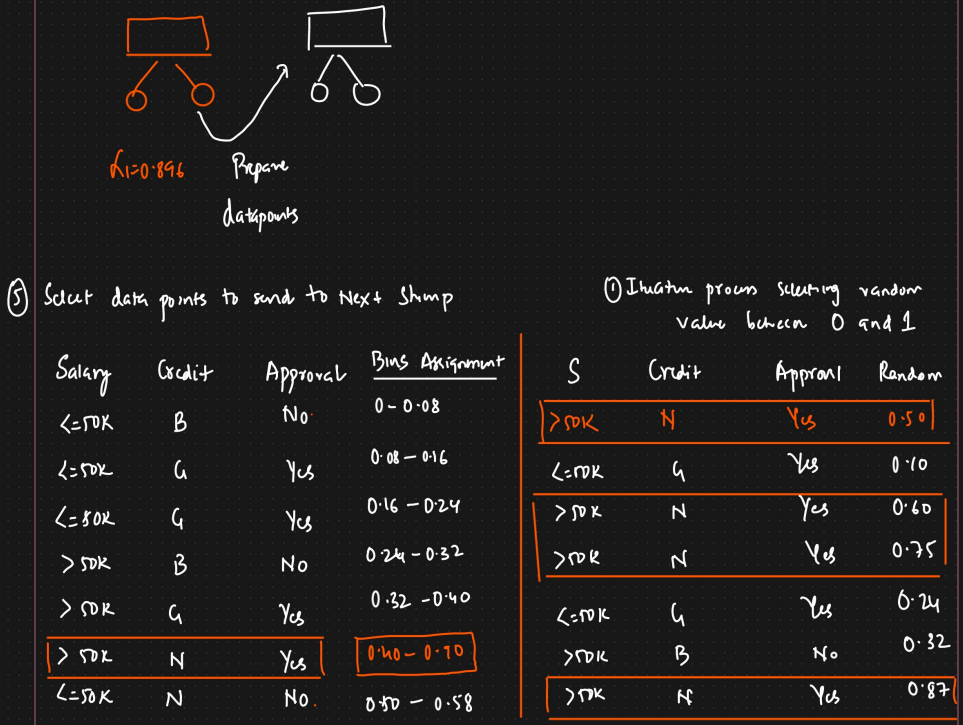 α1=0.896
Prepare
datapoints
⑤ Select data points to send to Next Stump
Salary Credit Approval Bins Assignment
<=50K B No. 0-0.08
<=50K G Yes 0.08-0.16
<=50K G Yes 0.16-0.24
>50K B No 0.24-0.32
>50K G Yes 0.32-0.40
>50K N Yes 0.40-0.90
<=50K N No. 0.90-0.58
① Iteration process selecting random
value between 0 and 1
S Credit Approval Random
>50K N Yes 0.50
<=50K G Yes 0.10
>50K N Yes 0.60
>50K N Yes 0.75
<=50K G Yes 0.24
>50K B No 0.32
>50K N Yes 0.87